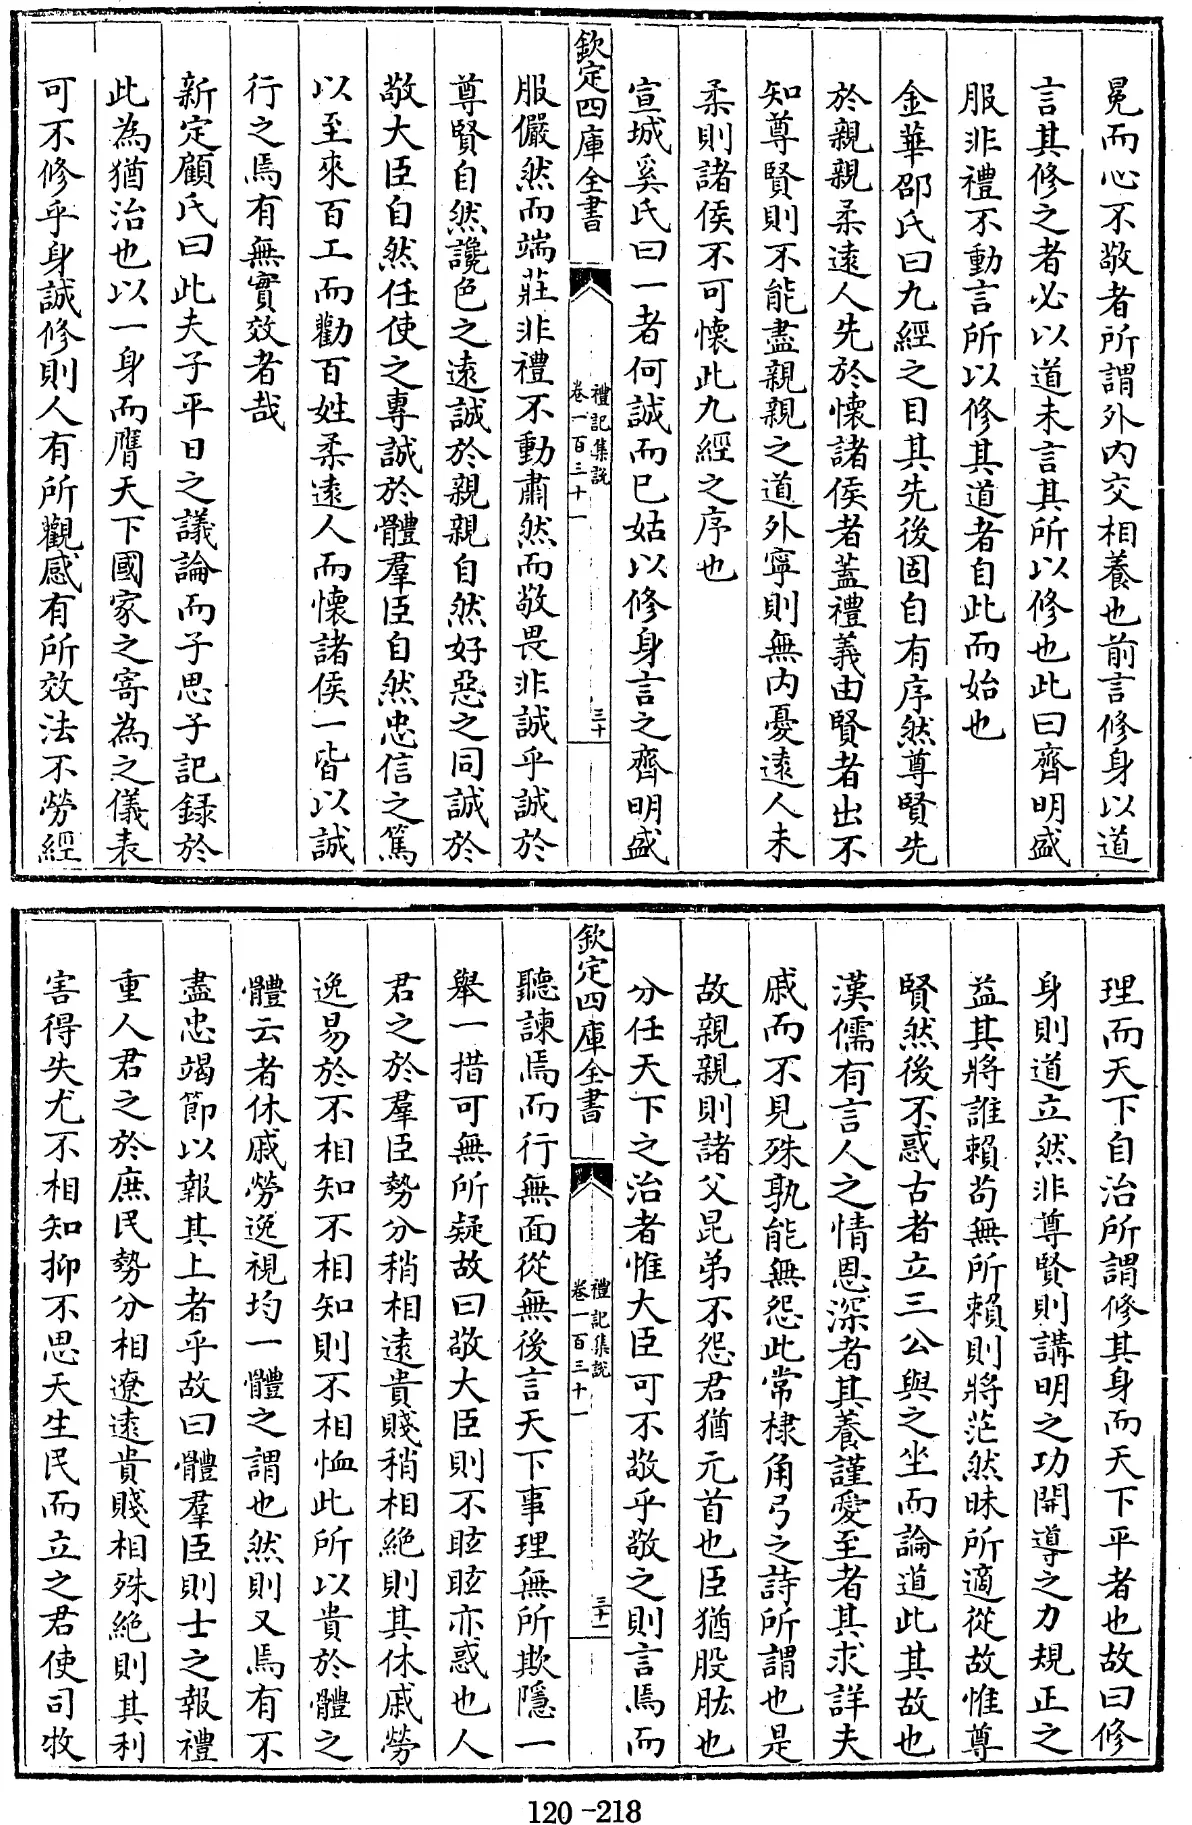 冕而心不敬者所謂外内交相養也前言修身以道
言其修之者必以道未言其所以修也此曰齊明盛
服非禮不動言所以修其道者自此而始也
金華邵氏曰九經之目其先後固自有序然尊賢先
於親親柔遠人先於懷諸侯者蓋禮義由賢者出不
知尊賢則不能盡親親之道外寧則無内憂遠人未
柔則諸侯不可懷此九經之序也
宣城奚氏曰一者何誠而已姑以修身言之齊明盛
欽定四庫全書
禮記集説
卷一百三十一
三十
服儼然而端莊非禮不動肅然而敬畏非誠乎誠於
尊賢自然讒色之遠誠於親親自然好惡之同誠於
敬大臣自然任使之專誠於體羣臣自然忠信之篤
以至來百工而勸百姓柔遠人而懷諸侯一皆以誠
行之焉有無實效者哉
新定顧氏曰此夫子平日之議論而子思子記録於
此為猶治也以一身而膺天下國家之寄為之儀表
可不修乎身誠修則人有所觀感有所效法不勞經
理而天下自治所謂修其身而天下平者也故曰修
身則道立然非尊賢則講明之功開導之力規正之
益其將誰賴苟無所賴則將茫然昧所適從故惟尊
賢然後不惑古者立三公與之坐而論道此其故也
漢儒有言人之情恩深者其養謹愛至者其求詳夫
戚而不見殊孰能無怨此常棣角弓之詩所謂也是
故親親則諸父昆弟不怨君猶元首也臣猶股肱也
分任天下之治者惟大臣可不敬乎敬之則言焉而
欽定四庫全書
禮記集説
卷一百三十一
三十一
聽諫焉而行無面從無後言天下事理無所欺隱一
舉一措可無所疑故曰敬大臣則不眩眩亦惑也人
君之於羣臣勢分稍相遠貴賤稍相絶則其休戚勞
逸易於不相知不相知則不相恤此所以貴於體之
體云者休戚勞逸視均一體之謂也然則又焉有不
盡忠竭節以報其上者乎故曰體羣臣則士之報禮
重人君之於庶民勢分相遼遠貴賤相殊絶則其利
害得失尤不相知抑不思天生民而立之君使司牧
120-218